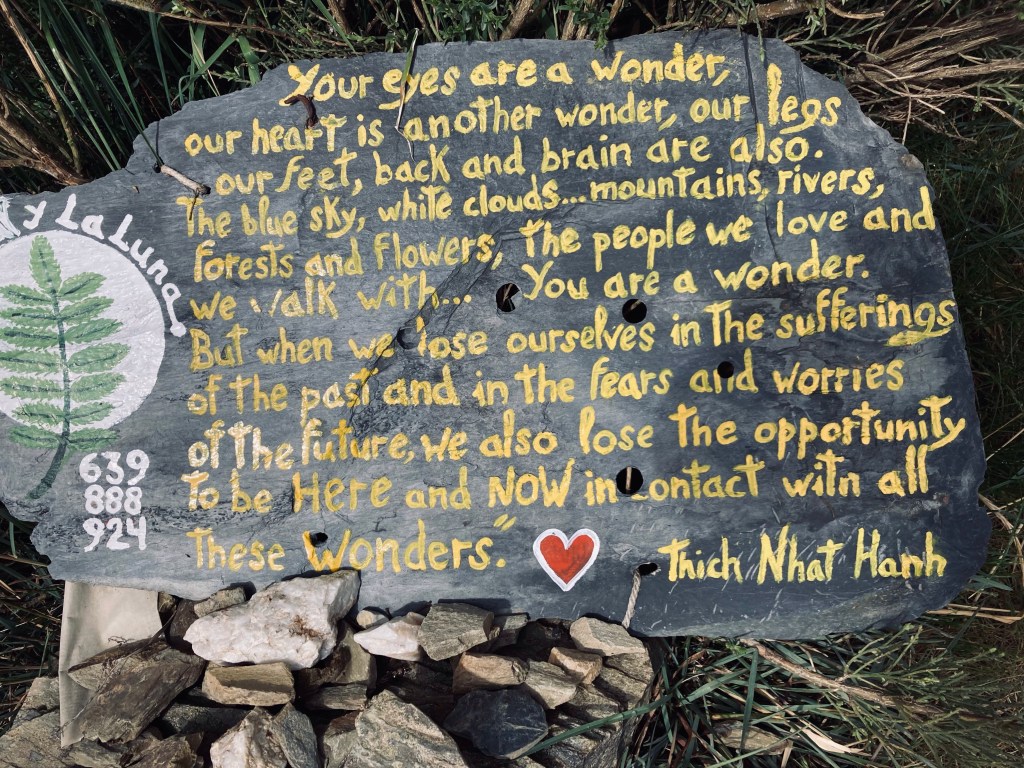 Your eyes are a wonder,
our heart is another wonder, our legs
our feet, back and brain are also.
The blue sky, white clouds... mountains, rivers,
forests and flowers, the people we love and
we walk with... You are a wonder.
But when we lose ourselves in the sufferings
of the past and in the fears and worries
of the future, we also lose the opportunity
To be Here and NOW in contact with all
These Wonders."
Thich Nhat Hanh
y La Luna
639
888
924